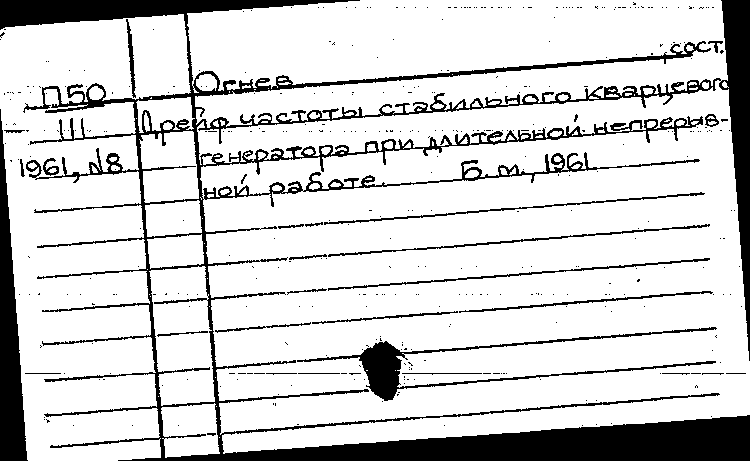 П50 Огнев , сост.
III Дрейф частоты стабильного кварцевого
1961, N8 генератора при длительной непрерыв-
ной работе. Б. м., 1961